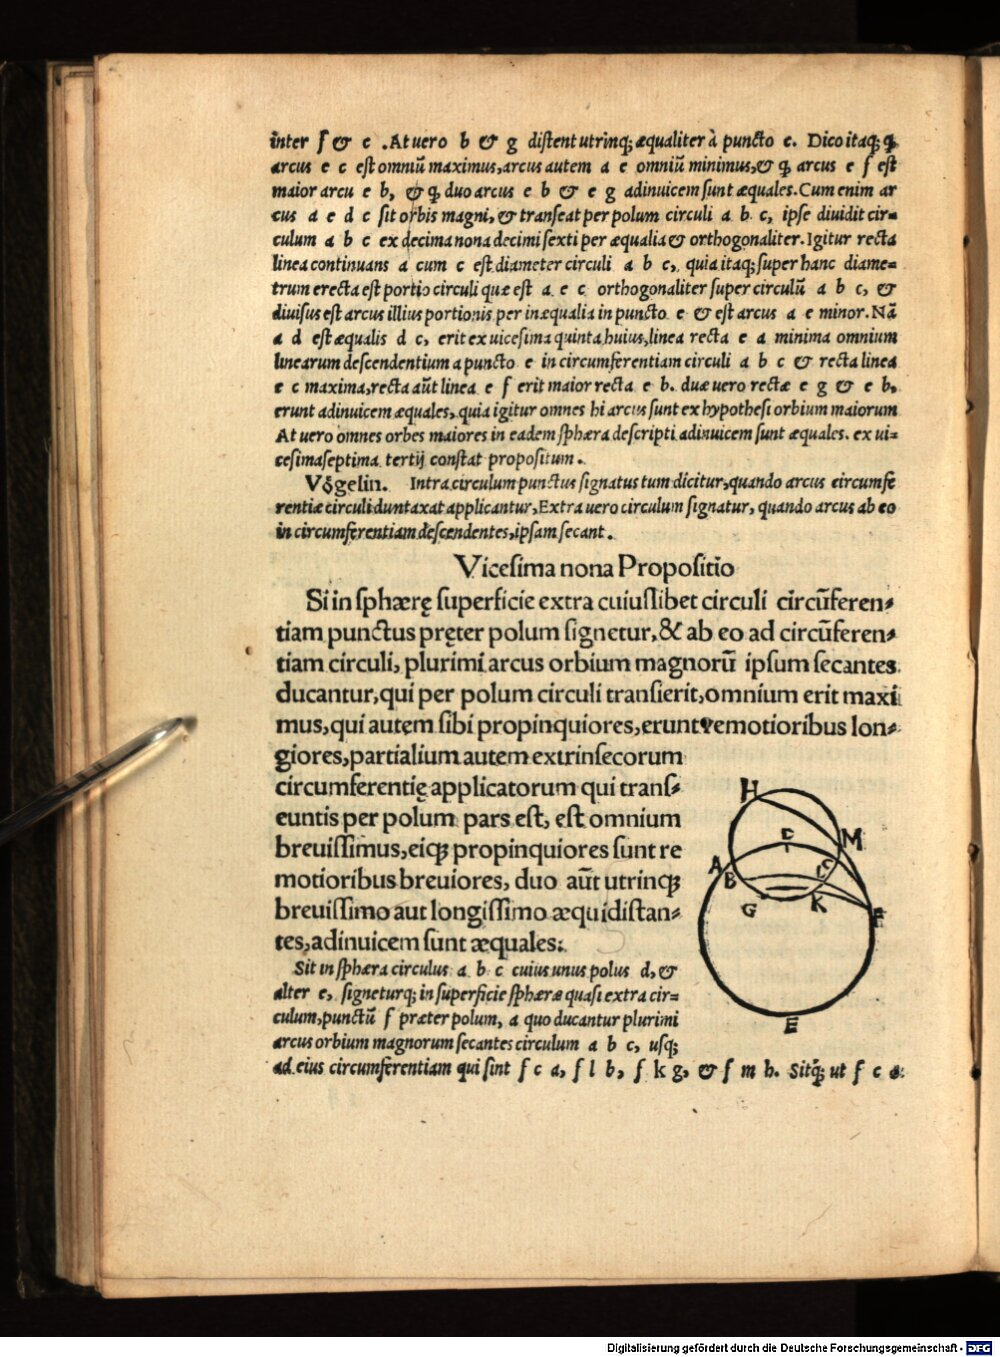 inter f & c . At uero b & g distent utrinq; æqualiter à puncto e. Dico itaq; ꝙ
arcus e c est omniũ maximus, arcus autem a e omniũ minimus, & ꝙ arcus e f est
maior arcu e b, & ꝙ duo arcus e b & e g adinuicem sunt æquales. Cum enim ar
cus a e d c sit orbis magni, & transeat per polum circuli a b c, ipse diuidit cir=
culum a b c ex decima nona decimi sexti per æqualia & orthogonaliter. Igitur recta
linea continuans a cum c est diameter circuli a b c, quia itaq; super hanc diame=
trum erecta est portio circuli quæ est a e c orthogonaliter super circulũ a b c, &
diuisus est arcus illius portionis per inæqualia in puncto e & est arcus a e minor. Nã
a d est æqualis d c, erit ex uicesima quinta huius, linea recta e a minima omnium
linearum descendentium a puncto e in circumferentiam circuli a b c & recta linea
e c maxima, recta aũt linea e f erit maior recta e b. duæ uero rectæ e g & e b,
erunt adinuicem æquales, quia igitur omnes hi arcus sunt ex hypothesi orbium maiorum
At uero omnes orbes maiores in eadem sphæra descripti adinuicem sunt æquales. ex ui=
cesimaseptima tertij constat propositum.
Vôgelin. Intra circulum punctus signatus tum dicitur, quando arcus circumfe
rentiæ circuli duntaxat applicantur, Extra uero circulum signatur, quando arcus ab eo
in circumferentiam descendentes, ipsam secant.
Vicesima nona Propositio
Si in sphærę superficie extra cuiuslibet circuli circũferen=
tiam punctus pręter polum signetur, & ab eo ad circũferen=
tiam circuli, plurimi arcus orbium magnorũ ipsum secantes
ducantur, qui per polum circuli transierit, omnium erit maxi
mus, qui autem sibi propinquiores, erunt remotioribus lon=
giores, partialium autem extrinsecorum
circumferentię applicatorum qui trans=
euntis per polum pars est, est omnium
breuissimus, eiq; propinquiores sunt re
motioribus breuiores, duo aũt utrinq;
breuissimo aut longissimo æquidistan=
tes, adinuicem sunt æquales.
Sit in sphæra circulus a b c cuius unus polus d, &
alter e, signeturq; in superficie sphæræ quasi extra cir=
culum, punctũ f præter polum, a quo ducantur plurimi
arcus orbium magnorum secantes circulum a b c, usq;
ad eius circumferentiam qui sint f c a, f l b, f k g, & f m h. Sitq; ut f c a
H
M
A
B
C
G
K
F
E
Digitalisierung gefördert durch die Deutsche Forschungsgemeinschaft - DFG